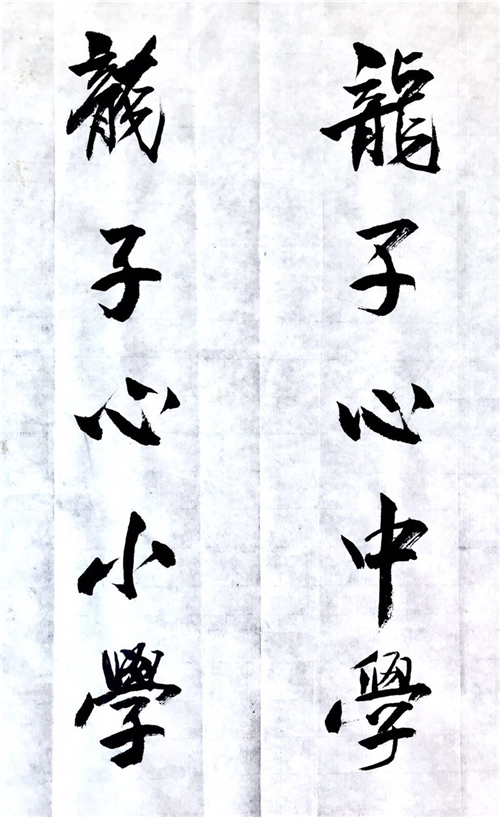 龍子心中學
龍子心小學